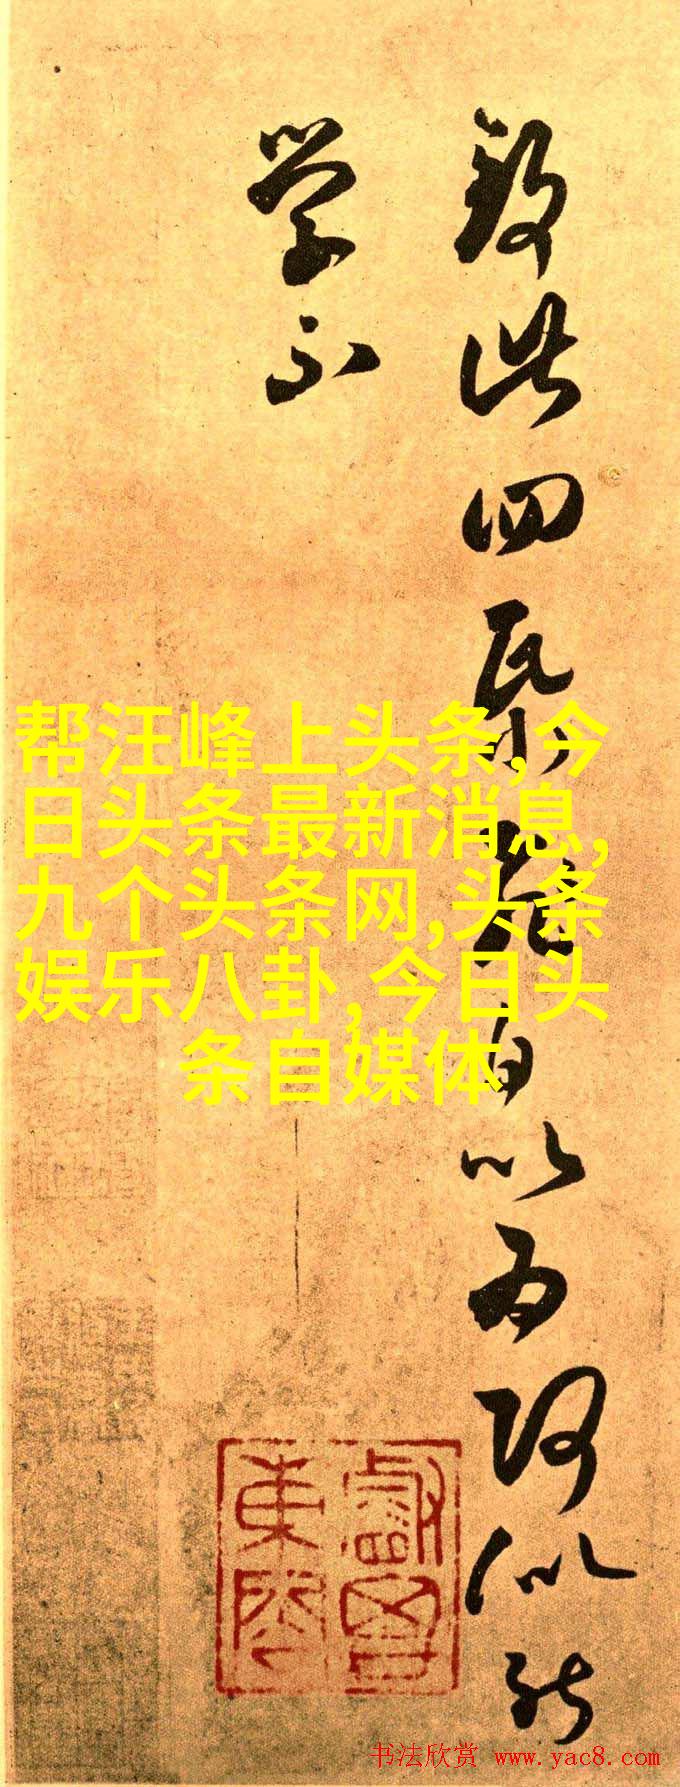 此四
自以为
似能
学不
帮汪峰上头条,今
日头条最新消息,
九个头条网,头条
娱乐八卦,今日头
条自媒体
书法欣赏 www.yac8.com